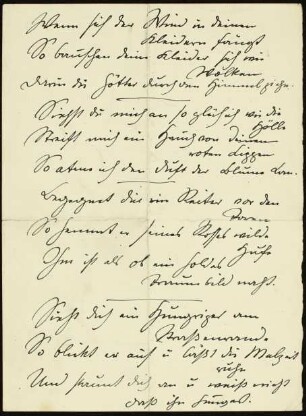 Wenn sich der Wind in deinen
Kleidern fängt
So bauschen deine Kleider sich wie
Wolken
Darin die Götter durch den Himmel ziehn.
Siehst du mich an so glüh ich wie die
Hölle
Streift mich ein Hauch von deinen
roten Lippen
So atme ich den Duft der Blume Lan.
Begegnet dir ein Reiter vor den
Toren
So hemmt er seines Rosses wilde
Hufe
Ihm ist als ob ein holdes
Traumbild naht.
Sieht dich ein Hungriger am
Straßenrande
So blickt er auf u läßt die Mahlzeit
ruhn
Und staunt dich an u weiß nicht
daß ihn hungert.